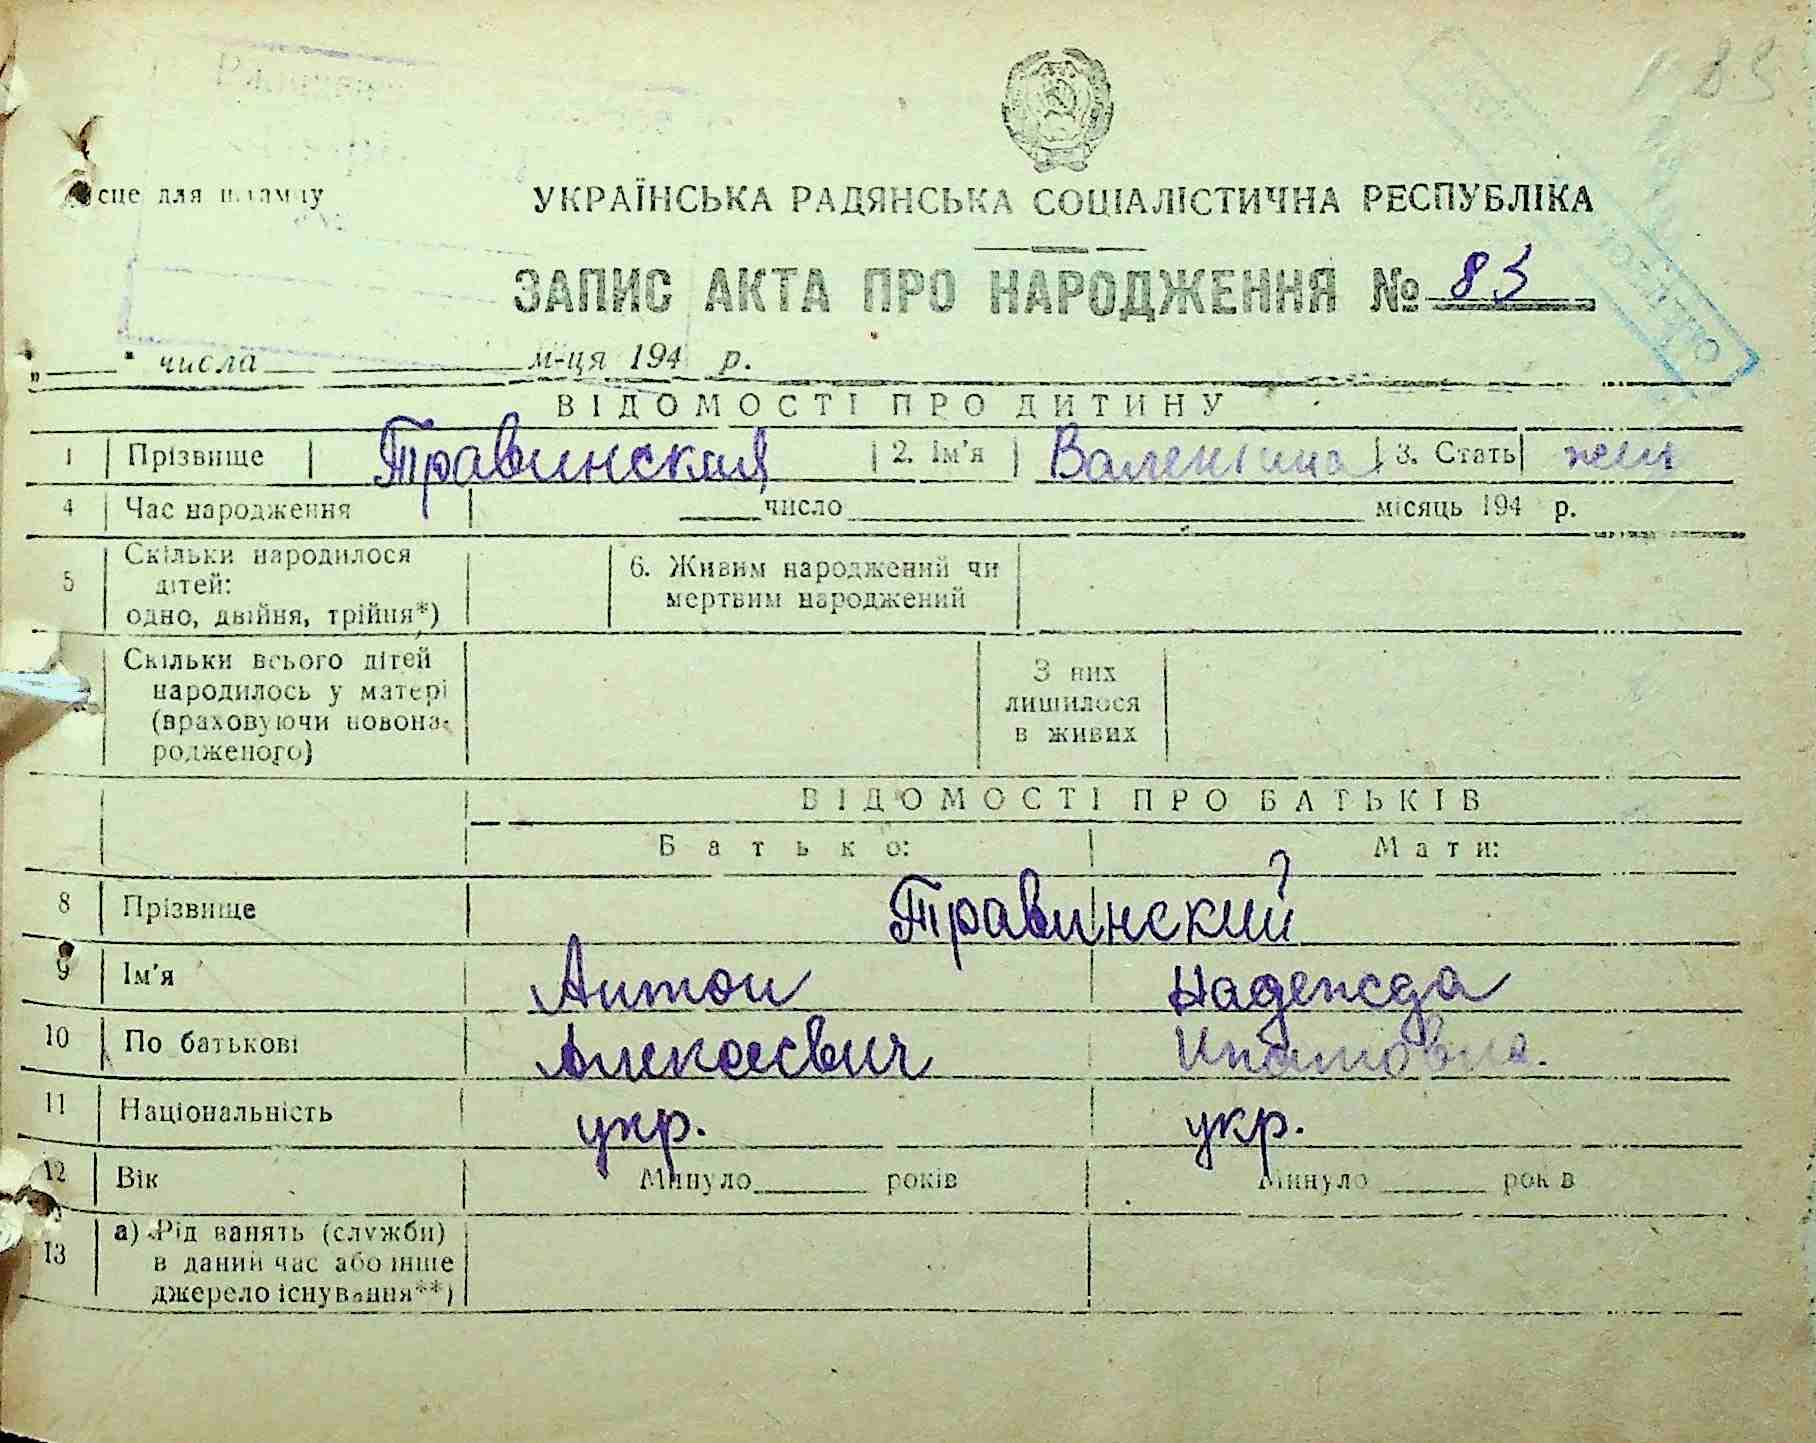 85
сце для штампу
УКРАЇНСЬКА РАДЯНСЬКА СОЦІАЛІСТИЧНА РЕСПУБЛІКА
ЗАПИС АКТА ПРО НАРОДЖЕННЯ № 85
„ " числа м-ця 194 р.
ВІДОМОСТІ ПРО ДИТИНУ
1 Прізвище Травинская 2. Ім'я Валентина 3. Стать жен
4 Час народження число місяць 194 р.
5 Скільки народилося дітей: одно, двійня, трійня*) 6. Живим народжений чи мертвим народжений
Скільки всього дітей народилось у матері (враховуючи новонародженого) З них лишилося в живих
ВІДОМОСТІ ПРО БАТЬКІВ
Батько: Мати:
8 Прізвище Травинский
9 Ім'я Антон Надежда
10 По батькові Алексеевич Ипатовна.
11 Національність укр. укр.
12 Вік Минуло років Минуло рок в
13 а) Рід занять (служби) в даний час або інше джерело існування**)